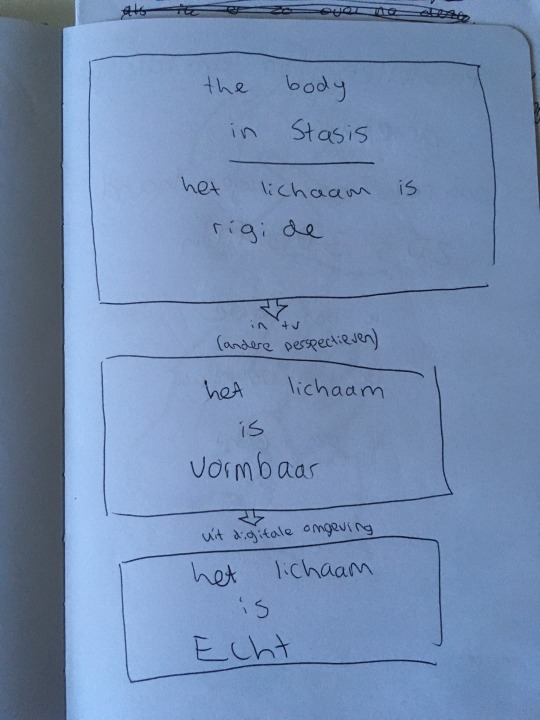 als ik er zo over na denk
the body
in Stasis
het lichaam is
rigide
in tv
(andere perspectieven)
het lichaam
is
vormbaar
uit digitale omgeving
het lichaam
is
Echt